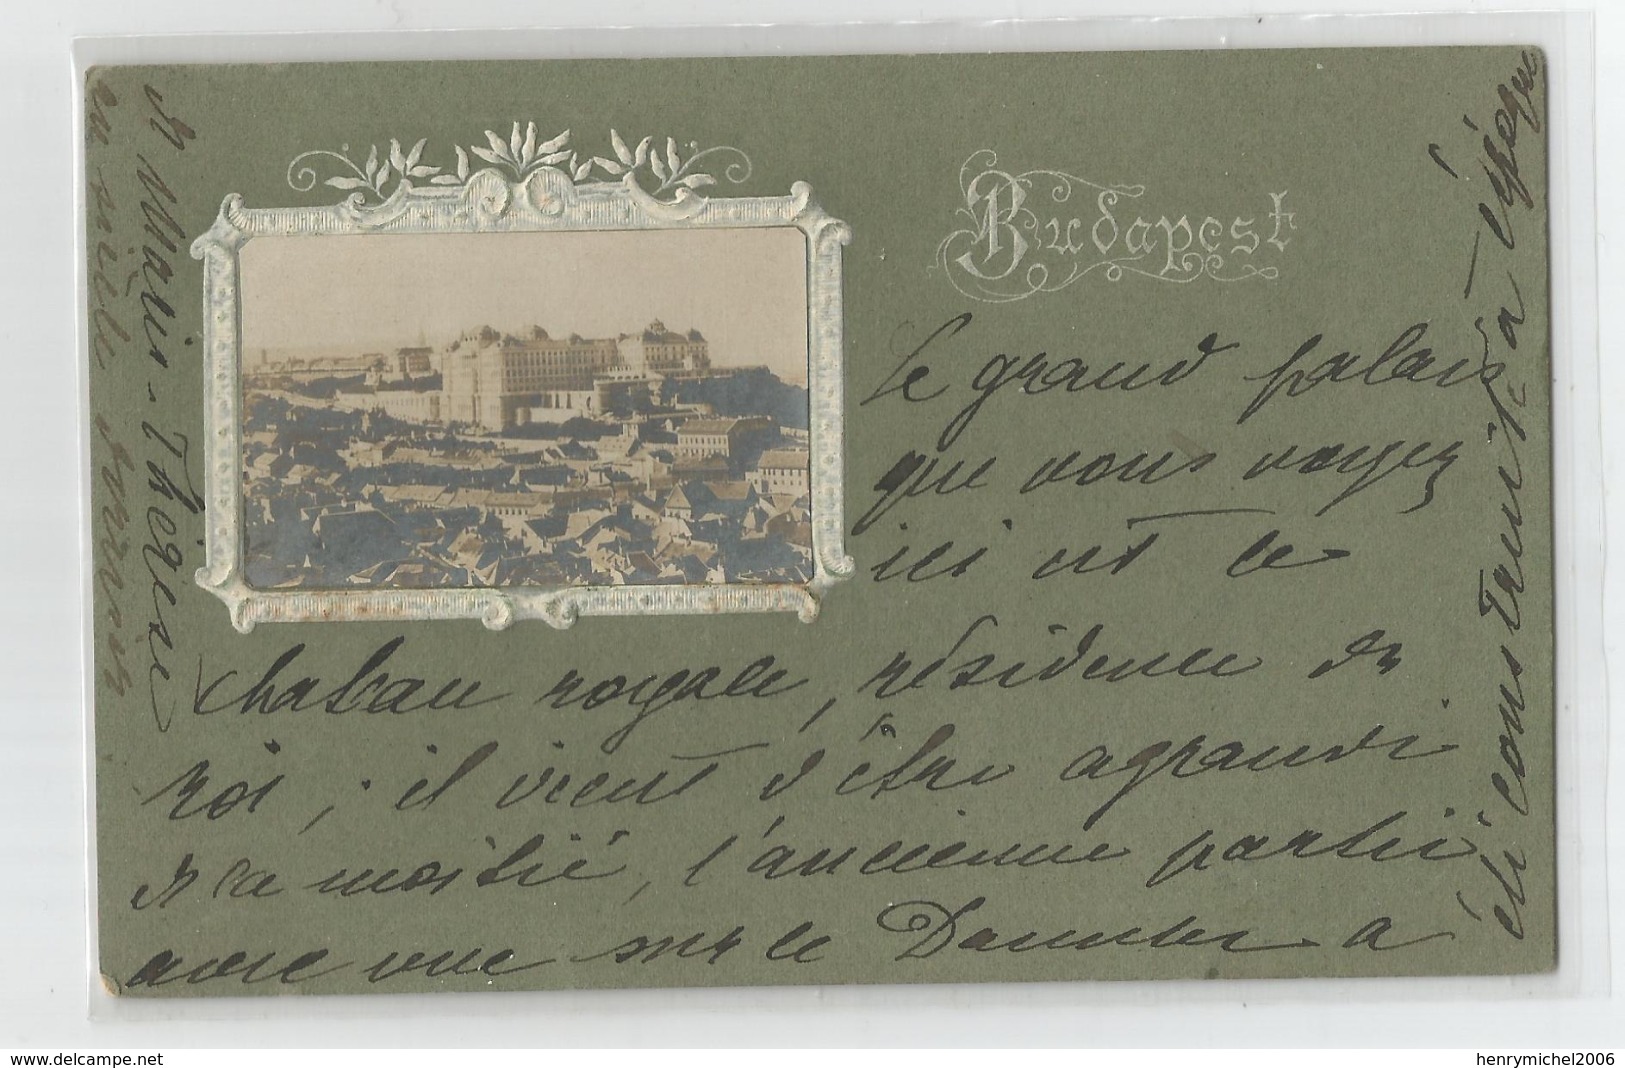 Budapest
Le grand palais
que vous voyez
ici est le
chateau royale, résidence du
roi ; il vient d'être agrandi
de sa moitié, l'ancienne partie
avec vue sur le Danube a
été construite à l'époque
de Marie-Thérèse
au siècle dernier
www.delcampe.net
henrymichel2006